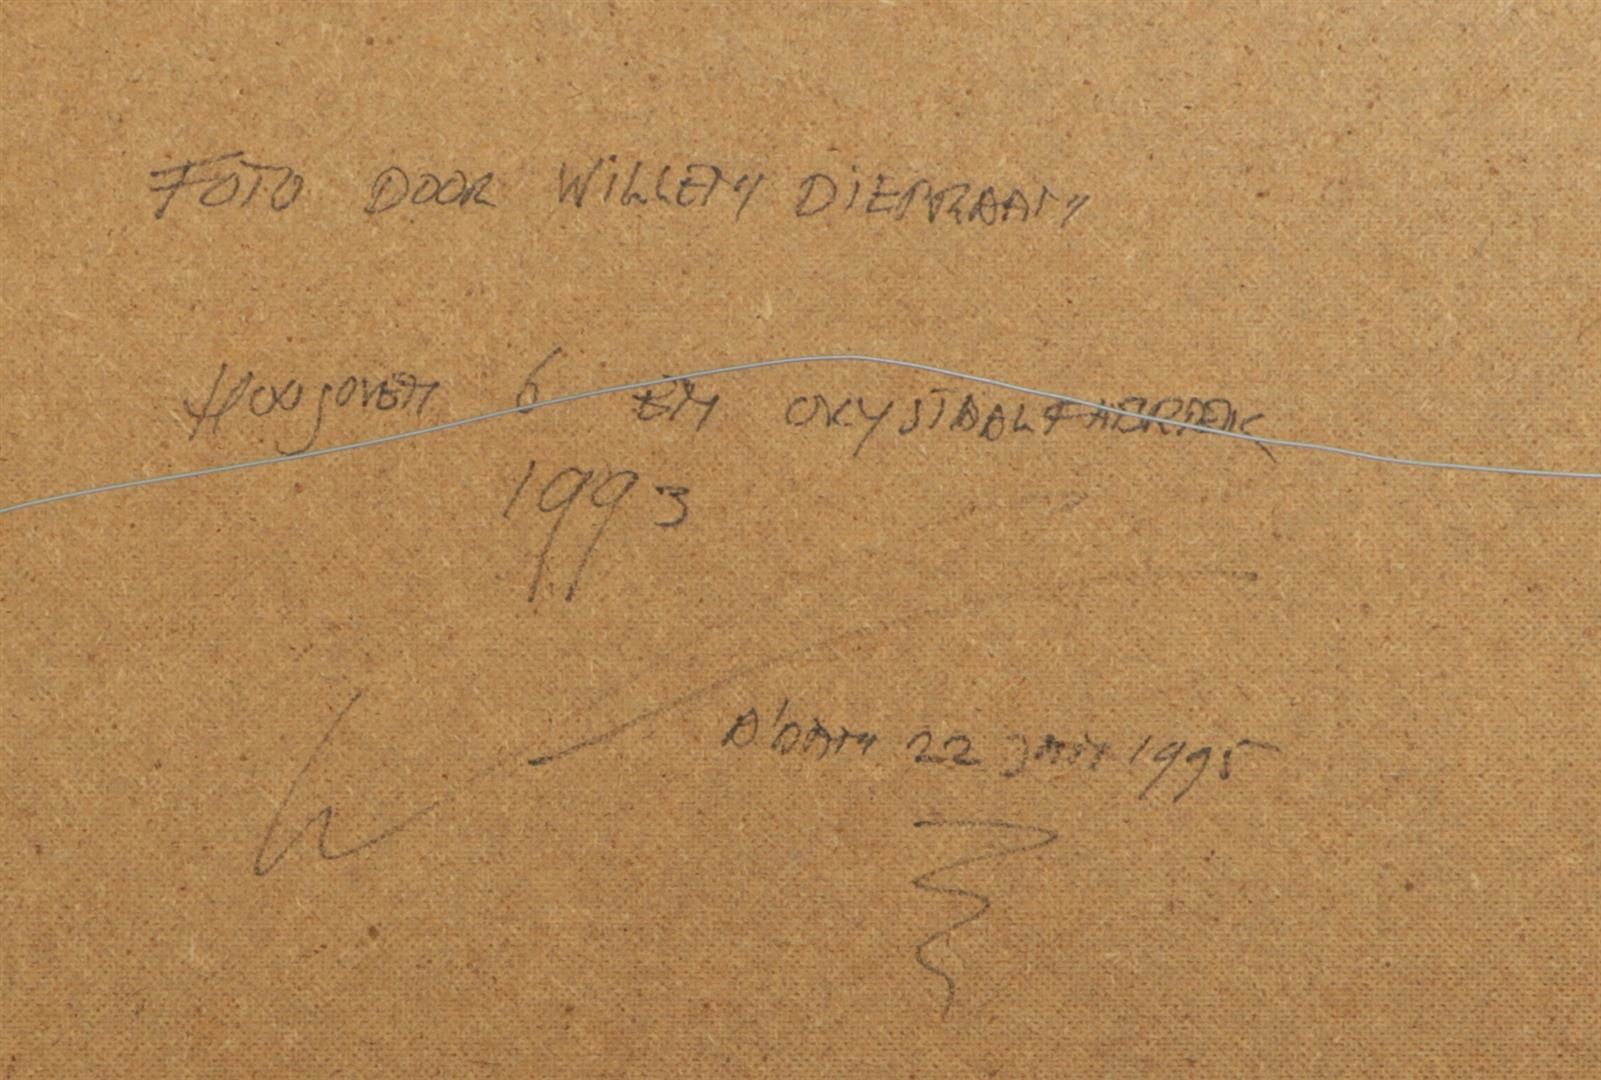 FOTO DOOR WILLEM DIEPRAAM
Hoogoven 6 EN OXYSTAALFABRIEK
1993
A'DAM 22 JAN 1995